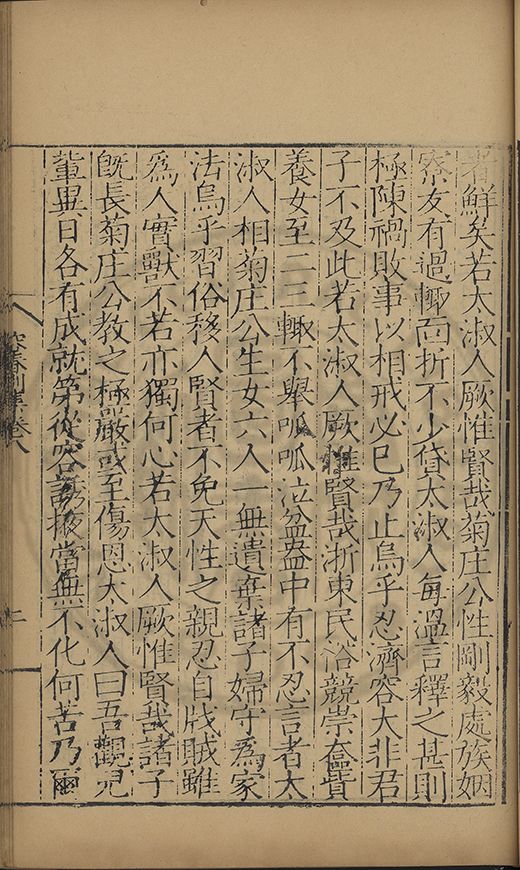 者鮮矣若太淑人厥惟賢哉菊庄公性剛毅處族姻
寮友有過輙面折不少貸太淑人每溫言釋之甚則
極陳禍敗事以相戒必已乃止烏乎忍濟容大非君
子不及此若太淑人厥惟賢哉浙東民俗競崇奩貲
養女至二三輙不舉呱呱泣盆盎中有不忍言者太
淑人相菊庄公生女六人一無遺棄諸子婦守為家
法烏乎習俗移人賢者不免天性之親忍自戕賊雖
爲人實獸不若亦獨何心若太淑人厥惟賢哉諸子
旣長菊庄公教之極嚴或至傷恩太淑人曰吾觀兒
輩異日各有成就第從容誘掖當無不化何苦乃爾
集卷八